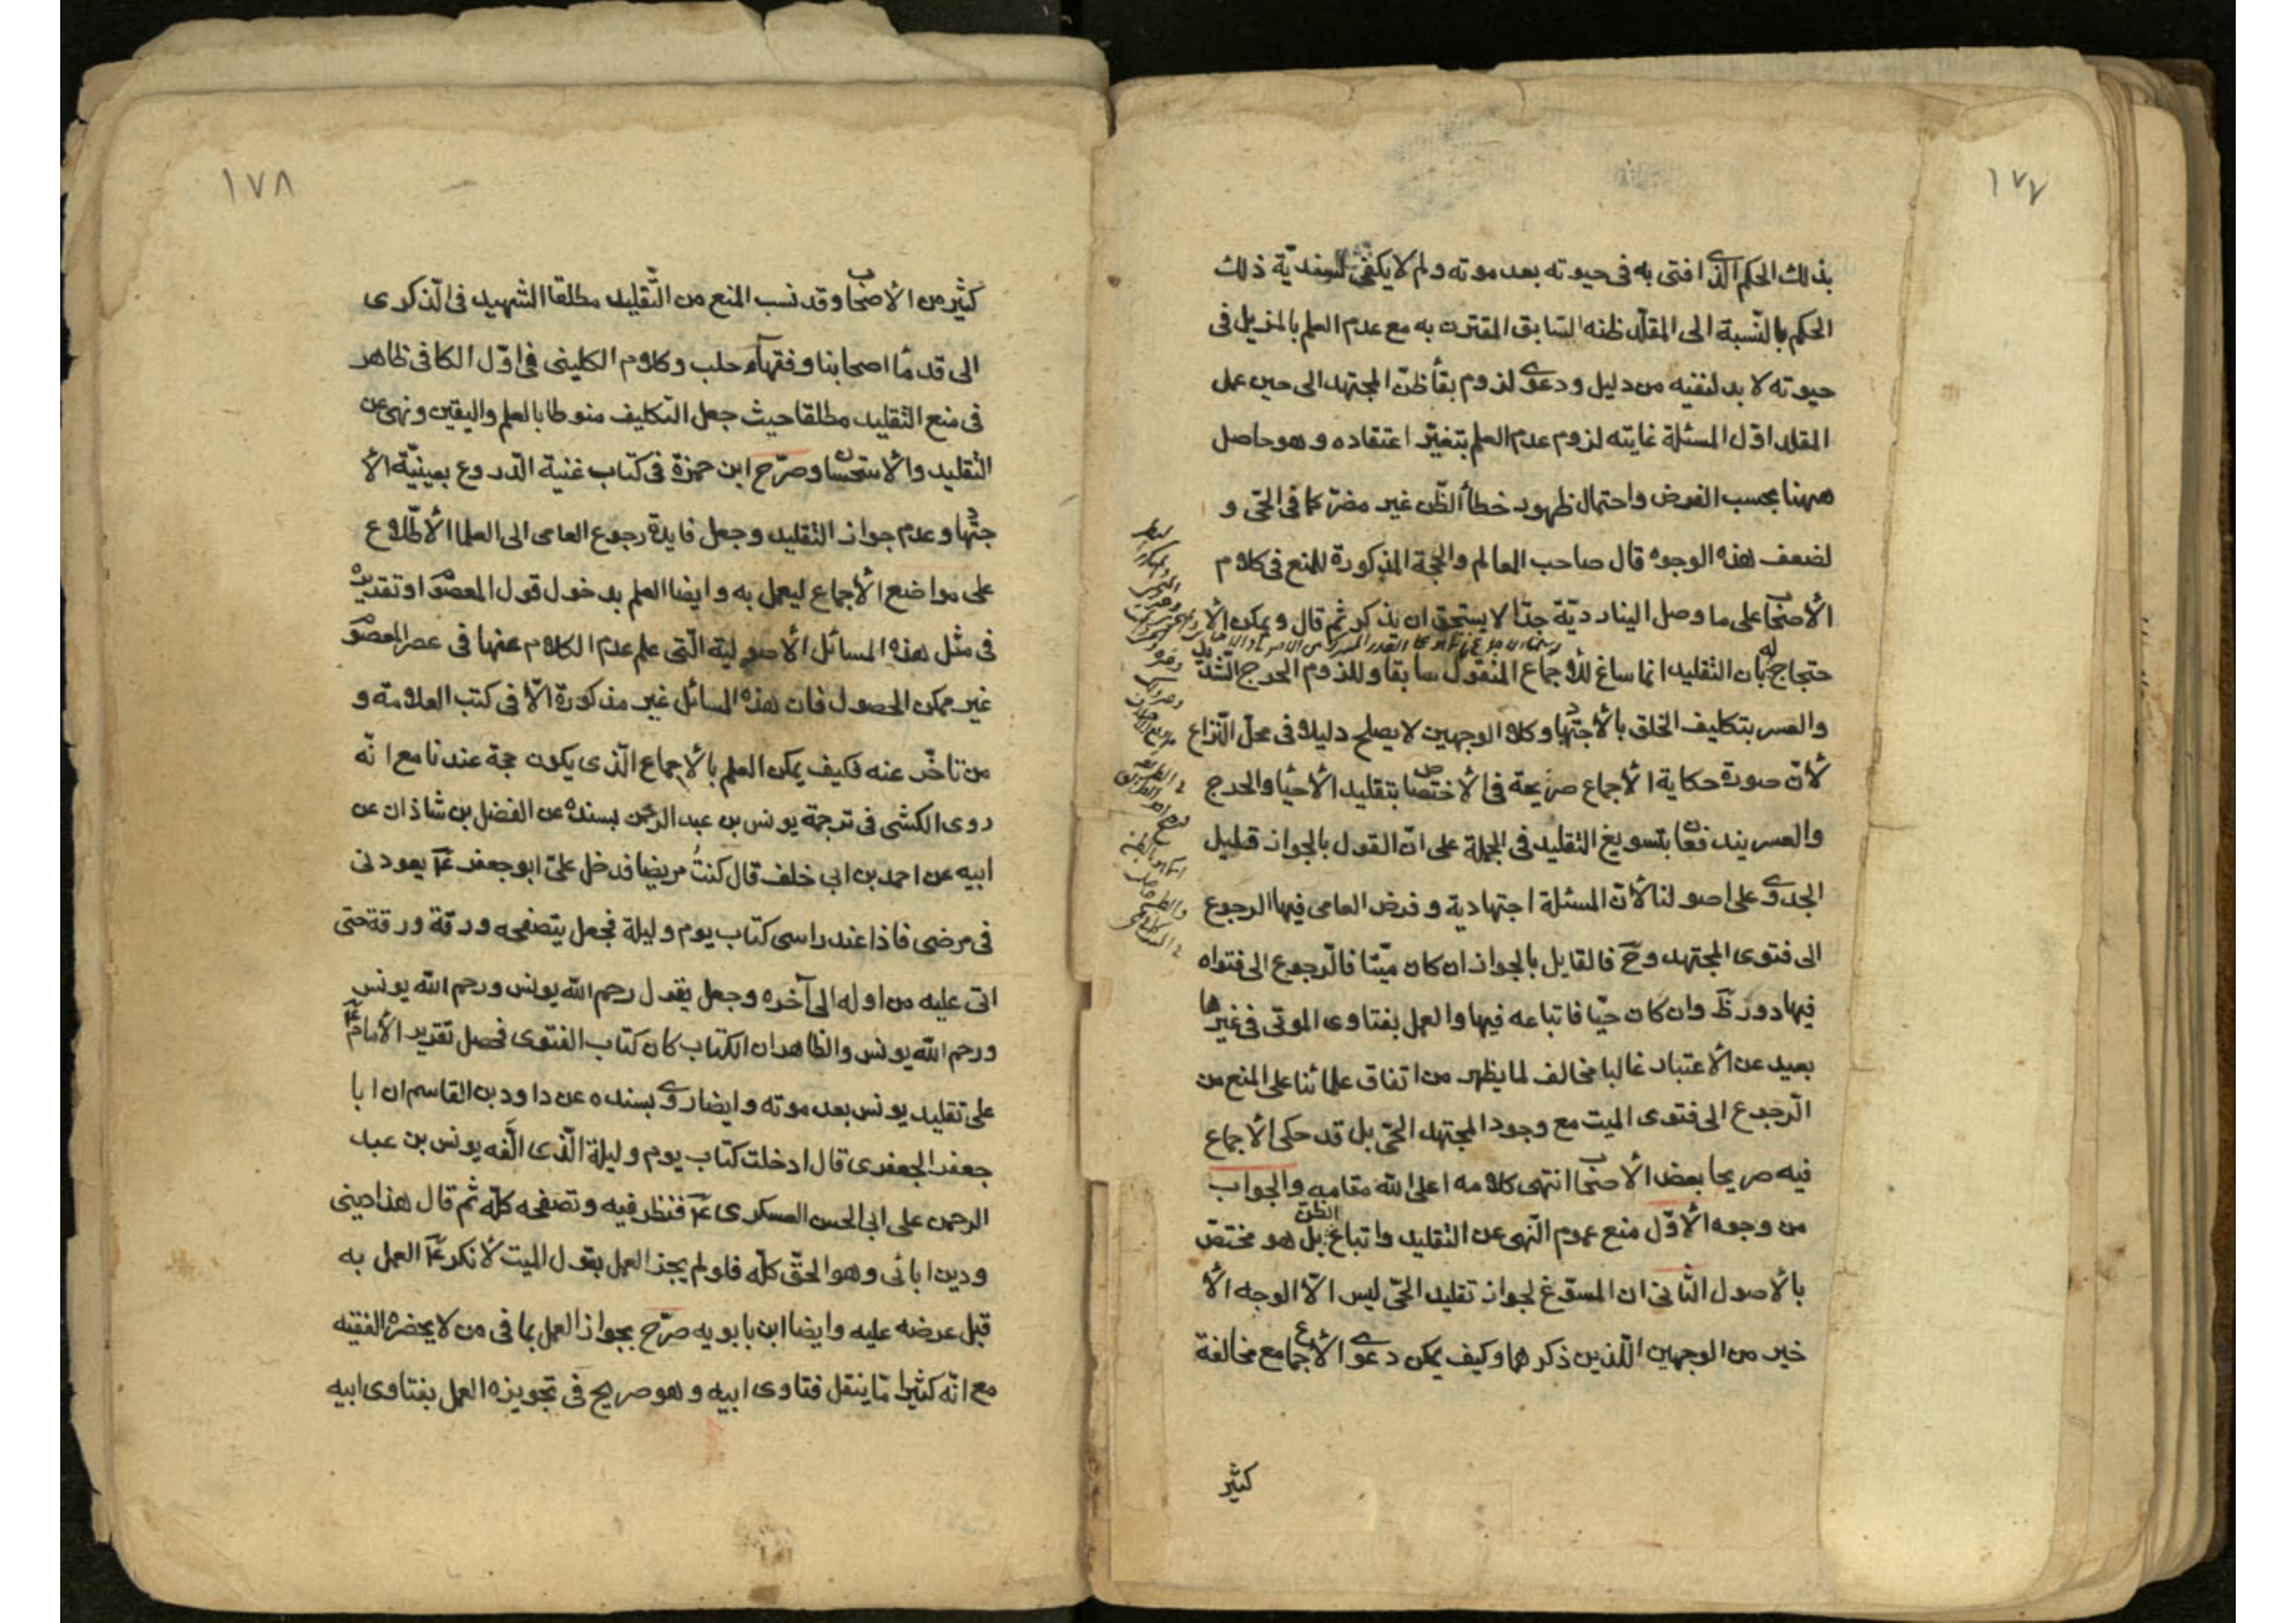 ١٧٧
بذلك الحكم الذى افتى به فى حيوته بعد موته ولم لا يكفى لسندية ذلك
الحكم بالنّسبة الى المقلّد ظنه السّابق المقترن به مع عدم العلم بالمزيل فى
حيوته لا بد لنفيه من دليل ودعوى لزوم بقأ ظنّ المجتهد الى حين عمل
المقلد اوّل المسئلة غايته لزوم عدم العلم بتغيّر اعتقاده وهو حاصل
ههنا بحسب الفرض واحتمال ظهور خطأ الظّن غير مضرّ كما فى الحىّ و
لضعف هذه الوجوه قال صاحب المعالم والحجة المذكورة للمنع فى كلام
الأصحاب على ما وصل الينا رديّة جدّا لا يستحق ان يذكر ثم قال ويمكن الا
حتجاج له بان التقليد انما ساغ للأجماع المنقول سابقا وللزوم الحرج الشّديد
والعسر بتكليف الخلق بالأجتهاد وكلا الوجهين لا يصلح دليلا فى محلّ النّزاع
لأنّ صورة حكاية الأجماع صريحة فى الأختصاص بتقليد الأحيا والحرج
والعسر يندفعان بتسويغ التقليد فى الجملة على انّ القول بالجواز قليل
الجدوى على اصولنا لأنّ المسئلة اجتهادية وفرض العامى فيها الرجوع
الى فتوى المجتهد وحّ فالقايل بالجواز ان كان ميّتا فالّرجوع الى فتواه
فيها دور ظّ وان كان حيّا فاتباعه فيها والعمل بفتاوى الموتى فى غيرها
بعيد عن الأعتبار غالبا مخالف لما يظهر من اتفاق علمائنا على المنع من
الّرجوع الى فتوى الميت مع وجود المجتهد الحىّ بل قد حكى الأجماع
فيه صريحا بعض الأصحاب انتهى كلامه اعلى الله مقامه والجواب
من وجوه الأوّل منع عموم النّهى عن التقليد واتباع الظنّ بل هو مختصّ
بالأصول الثّانى ان المسوّغ لجواز تقليد الحىّ ليس الّا الوجه الأ
خير من الوجهين اللّذين ذكرهما وكيف يمكن دعوى الأجماع مع مخالفة
كثير
١٧٨
كثير من الأصحاب وقد نسب المنع من التّقليد مطلقا الشهيد فى الّذكرى
الى قدمأ اصحابنا وفقهآء حلب وكلام الكلينى فى اوّل الكافى ظاهر
فى منع التقليد مطلقا حيث جعل التكليف منوطا بالعلم واليقين ونهى عن
التقليد والأستحسان وصرّح ابن حمزة فى كتاب غنية الّدروع بعينيّة الأ
جتهاد وعدم جواز التقليد وجعل فايدة رجوع العامى الى العلما الأطّلاع
على مواضع الأجماع ليعمل به وايضا العلم بدخول قول المعصوم او تقديره
فى مثل هذه المسائل الأصولية الّتى علم عدم الكلام عنها فى عصر المعصوم
غير ممكن الحصول فان هذه المسائل غير مذكورة الّا فى كتب العلامة و
من تاخّر عنه فكيف يمكن العلم بالأجماع الّذى يكون حجة عندنا مع انّه
روى الكشى فى ترجمة يونس بن عبد الرحمن بسنده عن الفضل بن شاذان عن
ابيه عن احمد بن ابى خلف قال كنتُ مريضا فدخل علىّ ابو جعفر عٓ يعودنى
فى مرضى فاذا عند راسى كتاب يوم وليلة فجعل يتصفحه ورقة ورقة حتى
اتى عليه من اوله الى آخره وجعل يقول رحم الله يونس ورحم الله يونس
ورحم الله يونس والظاهر ان الكتاب كان كتاب الفتوى فحصل تقرير الأمام عٓ
على تقليد يونس بعد موته وايضا روى بسنده عن داود بن القاسم ان ابا
جعفر الجعفرى قال ادخلت كتاب يوم وليلة الّذى الّفه يونس بن عبد
الرحمن على ابى الحسن العسكرى عٓ فنظر فيه وتصفحه كلّه ثم قال هذا دينى
ودين ابائى وهو الحقّ كلّه فلو لم يجز العمل بقول الميت لأنكر عٓ العمل به
قبل عرضه عليه وايضا ابن بابويه صرّح بجواز العمل بما فى من لا يحضره الفقيه
مع انّه كثيرا مّا ينقل فتاوى ابيه وهو صريح فى تجويزه العمل بفتاوى ابيه